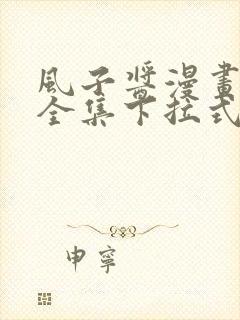 風子醬漫畫
全集下拉式
申寧